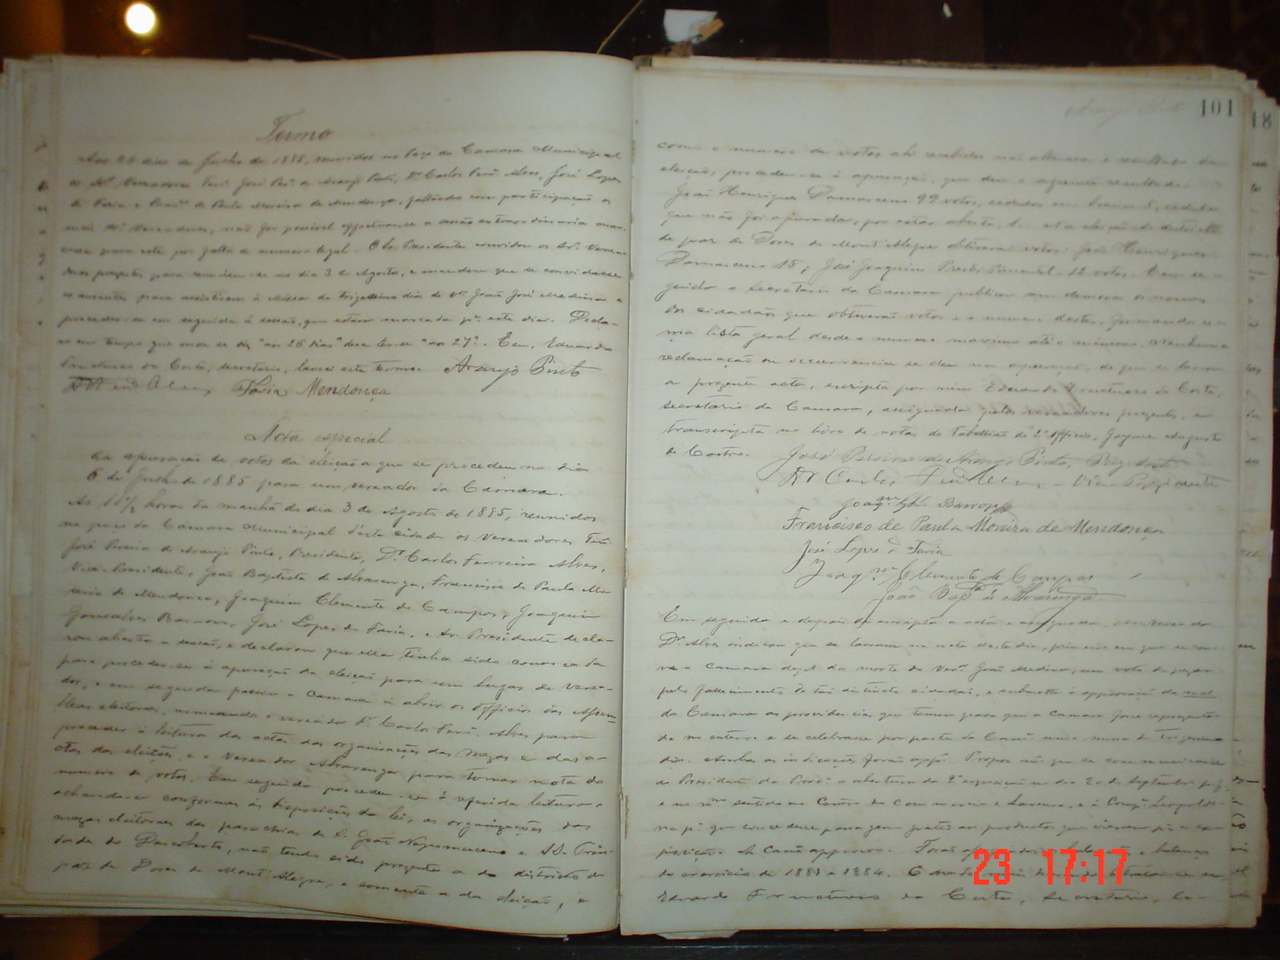 Termo
Aos 26 dias de Julho de 1885, reunidos no Paço da Camara Municipal
os Srs. Vereadores Tene. José Pera. de Araujo Pinto, Dr. Carlos Ferra. Alves, José Lopes
de Faria e Franco. de Paula Moreira de Mendonça, faltando com participação os
mais Srs. Vereadores, não foi possivel effectuar-se a sessão extraordinaria
para este por falta de numero legal. O Sr. Presidente convidou os Srs. Verea-
dores presentes para reunirem-se no dia 3 de Agosto, e mandou que se convidasse
os ausentes para assistirem á missa do trigesimo dia do João José Medina e
proceder-se em seguida á sessão, que estava marcada pa. este dia. Decla-
ro em tempo que onde se diz "aos 26 dias" deve ler-se "aos 27". Eu, Eduardo
Fructuoso da Costa, secretario, lavrei este termo. Araujo Pinto
Faria Mendonça
Acta especial
da apuração de votos da eleição a que se procedeu no dia
6 de Julho de 1885 para um vereador da Camara.
As 10 1/2 horas da manhã do dia 3 de Agosto de 1885, reunidos
no paço da Camara Municipal d'esta cidade os Vereadores Tene.
José Pereira de Araujo Pinto, Presidente, Dr. Carlos Ferreira Alves,
Vice-Presidente, João Baptista de Alvarenga, Francisco de Paula Mo-
reira de Mendonça, Joaquim Clemente de Campos, Joaquim
Gonsalves Barroso, José Lopes de Faria, o Sr. Presidente decla-
rou aberta a sessão, e declarou que ella tinha sido convocada
para proceder-se á apuração da eleição para um lugar de verea-
dor, e em seguida passou a Camara á abrir os officios das Assem-
bleas eleitoraes, nomeando o vereador Dr. Carlos Ferra. Alves para
proceder á leitura das actas das organisações das mezas e das a-
ctas das eleições, e o Vereador Alvarenga para tomar nota do
numero de votos. Em seguida procedeu-se á referida leitura,
achando-se conformes ás disposições da lei, as organisações das
mezas eleitoraes das parochias de S. João Nepomuceno e SS. Trin-
dade do Descoberto, não tendo sido presente a do districto de
paz de Dores de Mont'Alegre, e somente a da eleição, e
101
como o numero de votos ahi recebidos não alterava o resultado da
eleição, procedeu-se á apuração, que deu o seguinte resultado:
João Henrique Damasceno 99 votos, cedulas em branco 5, cedula
que não foi apurada, por estar aberta, 1. Na eleição do districto
de paz de Dores de Mont'Alegre obtiveram votos: João Henrique
Damasceno 15; José Joaquim Pimentel 12 votos. Em se-
guida o secretario da Camara publicou sem demora os nomes
dos cidadãos que obtiverão votos e o numero destes, formando u-
ma lista geral desde o numero maximo até o minimo. Nenhuma
reclamação ou occurrencia se deu na apuração, de que se lavrou
a presente acta, escripta por mim Eduardo Fructuoso da Costa,
secretario da Camara, assignada pelos vereadores presentes, e
transcripta no livro de notas do tabellião do 2º officio, Augusto
de Castro. José Pereira de Araujo Pinto, Presidente
Dr. Carlos Ferra. Alves, Vice Presidente
Joaqm. Glz. Barroso
Francisco de Paula Moreira de Mendonça
José Lopes de Faria
Joaqm. Clemente de Campos
João Bapta. de Alvarenga
Em seguida e depois de escripta a acta e assignada, o vereador
Dr. Alves indicou que se lavrasse na acta deste dia, primeiro em que se reu-
nio a Camara depois da morte do Verr. João Medina, um voto de pezar
pelo fallecimento de tão distincto cidadão, e submette á approvação
da Camara as providencias que tomou para que a Camara fosse representa-
da no enterro e se celebrasse por parte da Camara uma missa do trigesimo
dia. Ambas as indicações forão approvadas. que se communicasse
ao Presidente da Provincia a abertura da 2ª exposição no dia 20 de Septembro
e no mesmo sentido ao Centro do Commercio e Lavoura, e á Compª. Leopoldi-
na pa. que concedesse passagem gratis aos productos que viessem pa. a ex-
posição. A Camara approvou.
do exercicio de 1883 a 1884.
Eduardo Fructuoso da Costa, secretario, la-
23 17:17